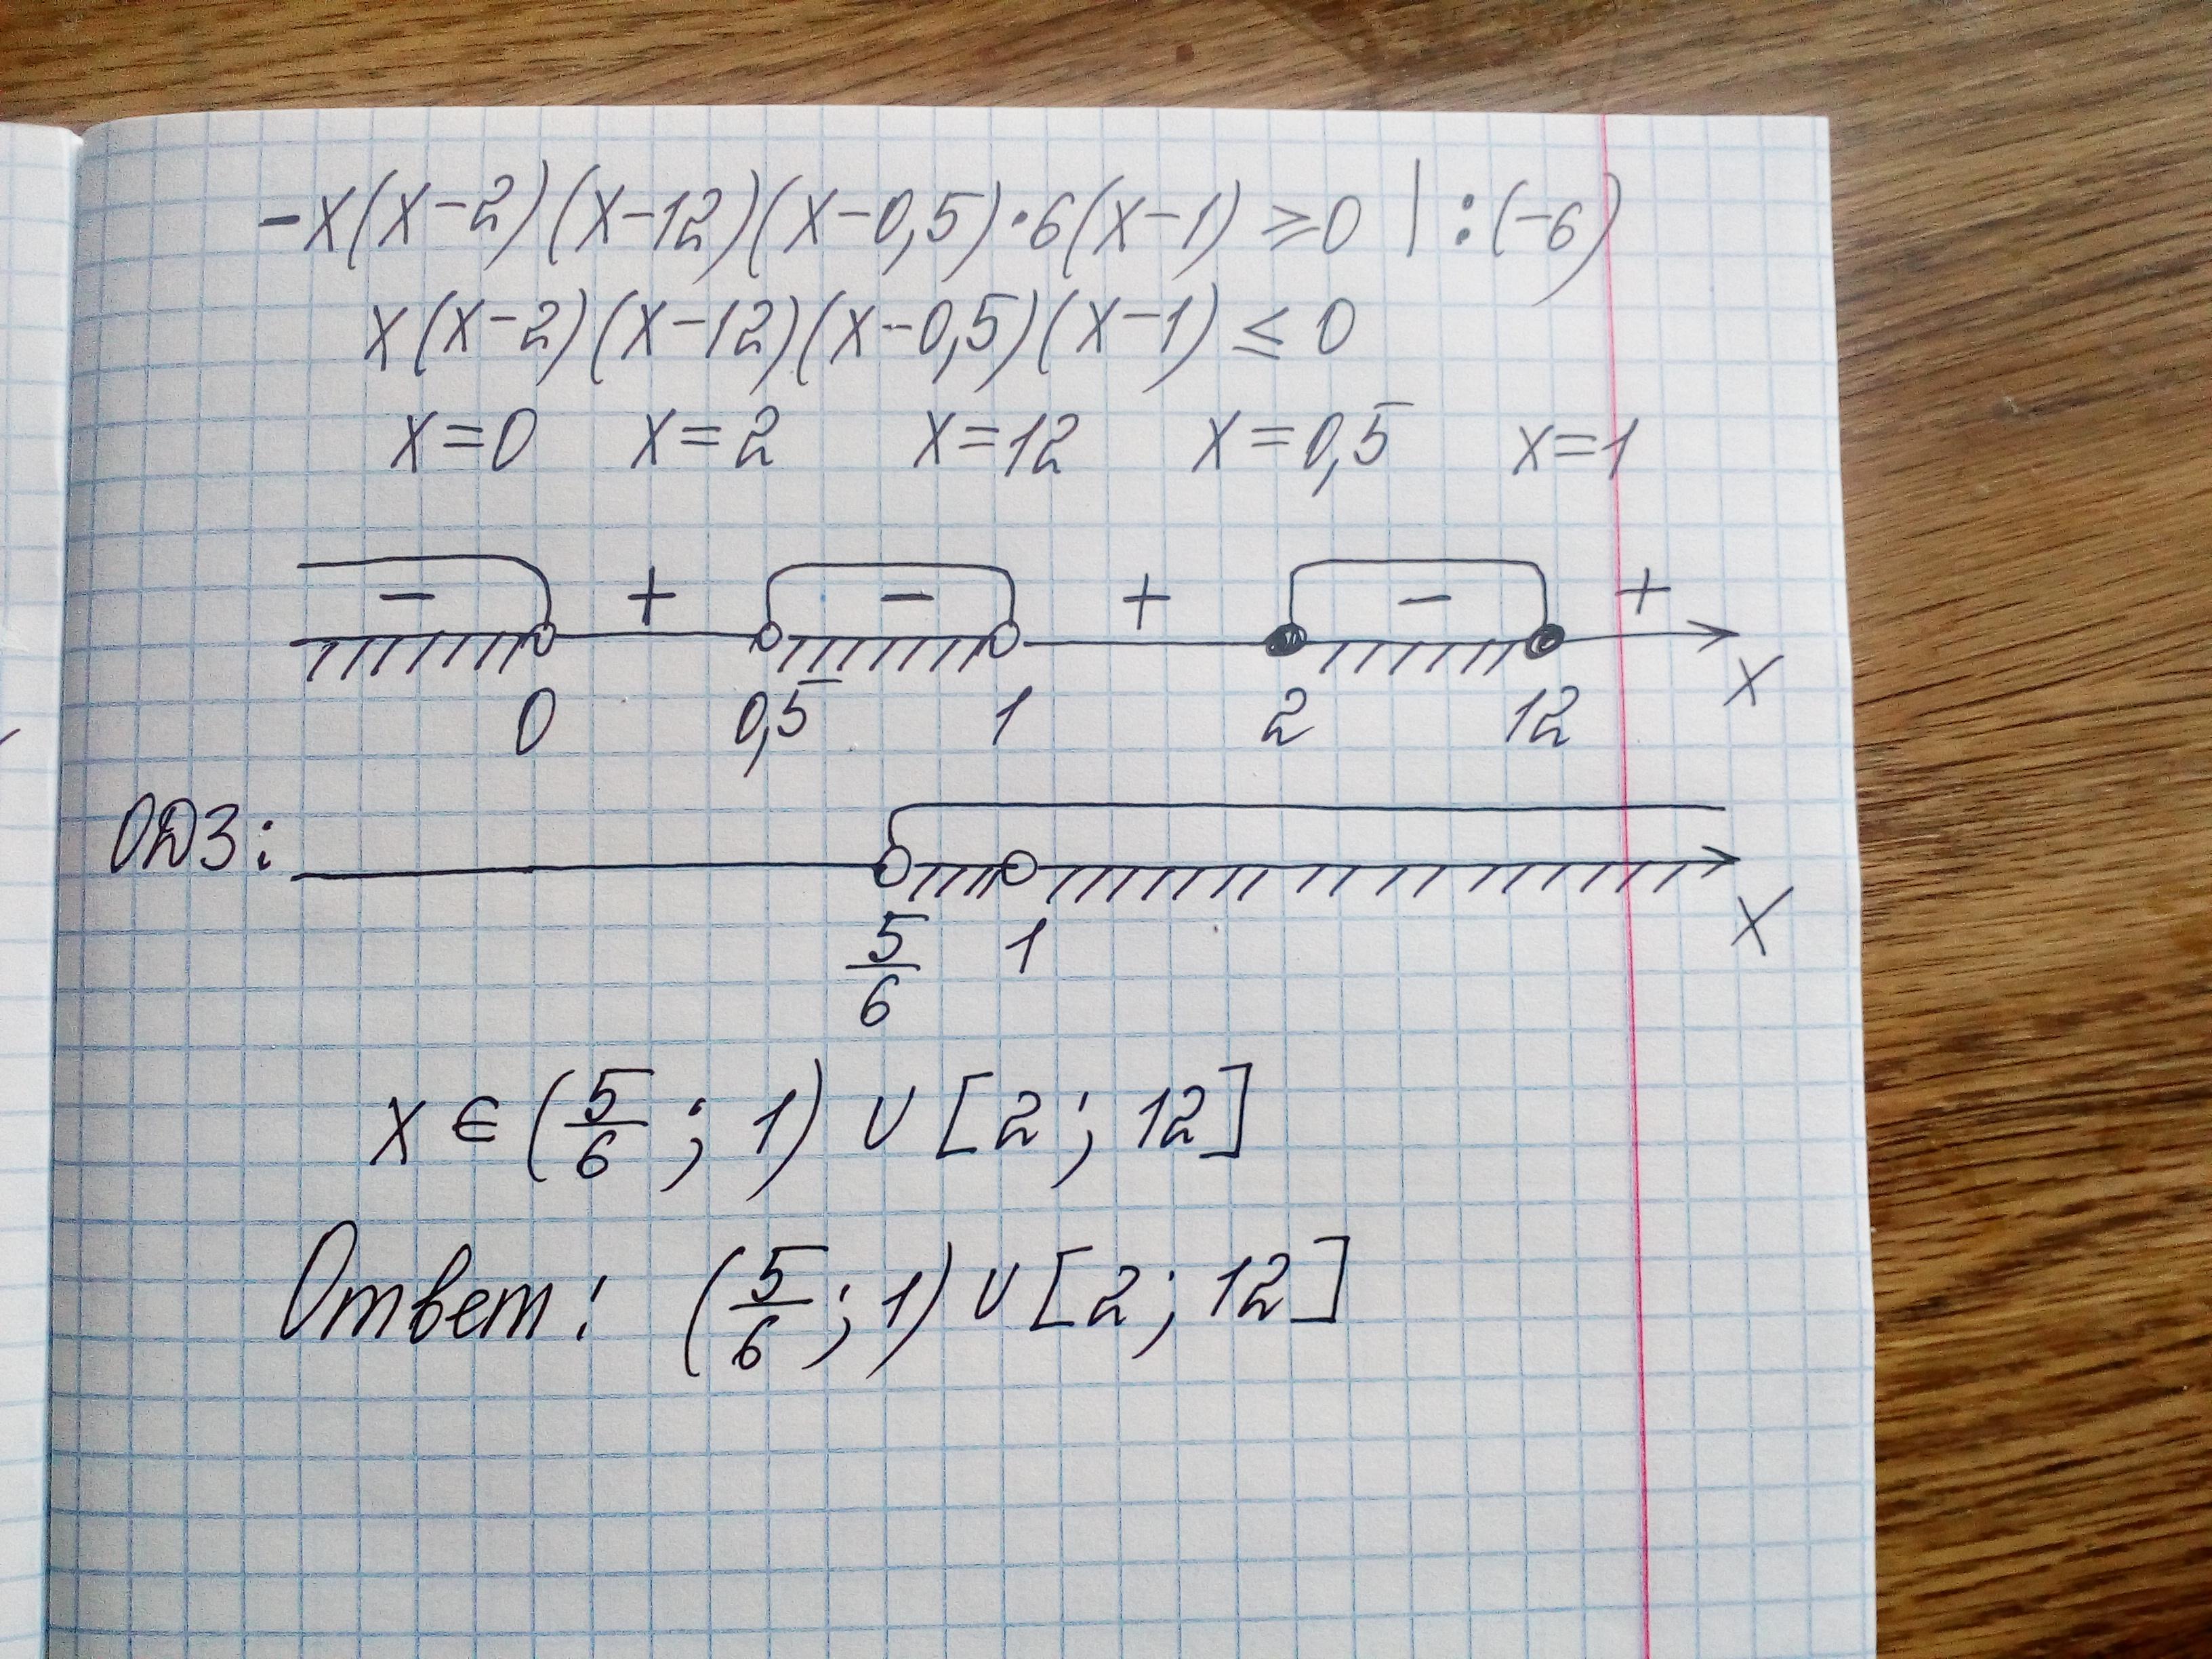 -x(x-2)(x-12)(x-0,5)·6(x-1)⩾0 | :(-6)
x(x-2)(x-12)(x-0,5)(x-1)≤0
x=0 x=2 x=12 x=0,5 x=1
- + - + - +
0 0,5 1 2 12 x
ОДЗ:
5/6 1 x
x∈(5/6; 1)∪[2; 12]
Ответ: (5/6; 1)∪[2; 12]